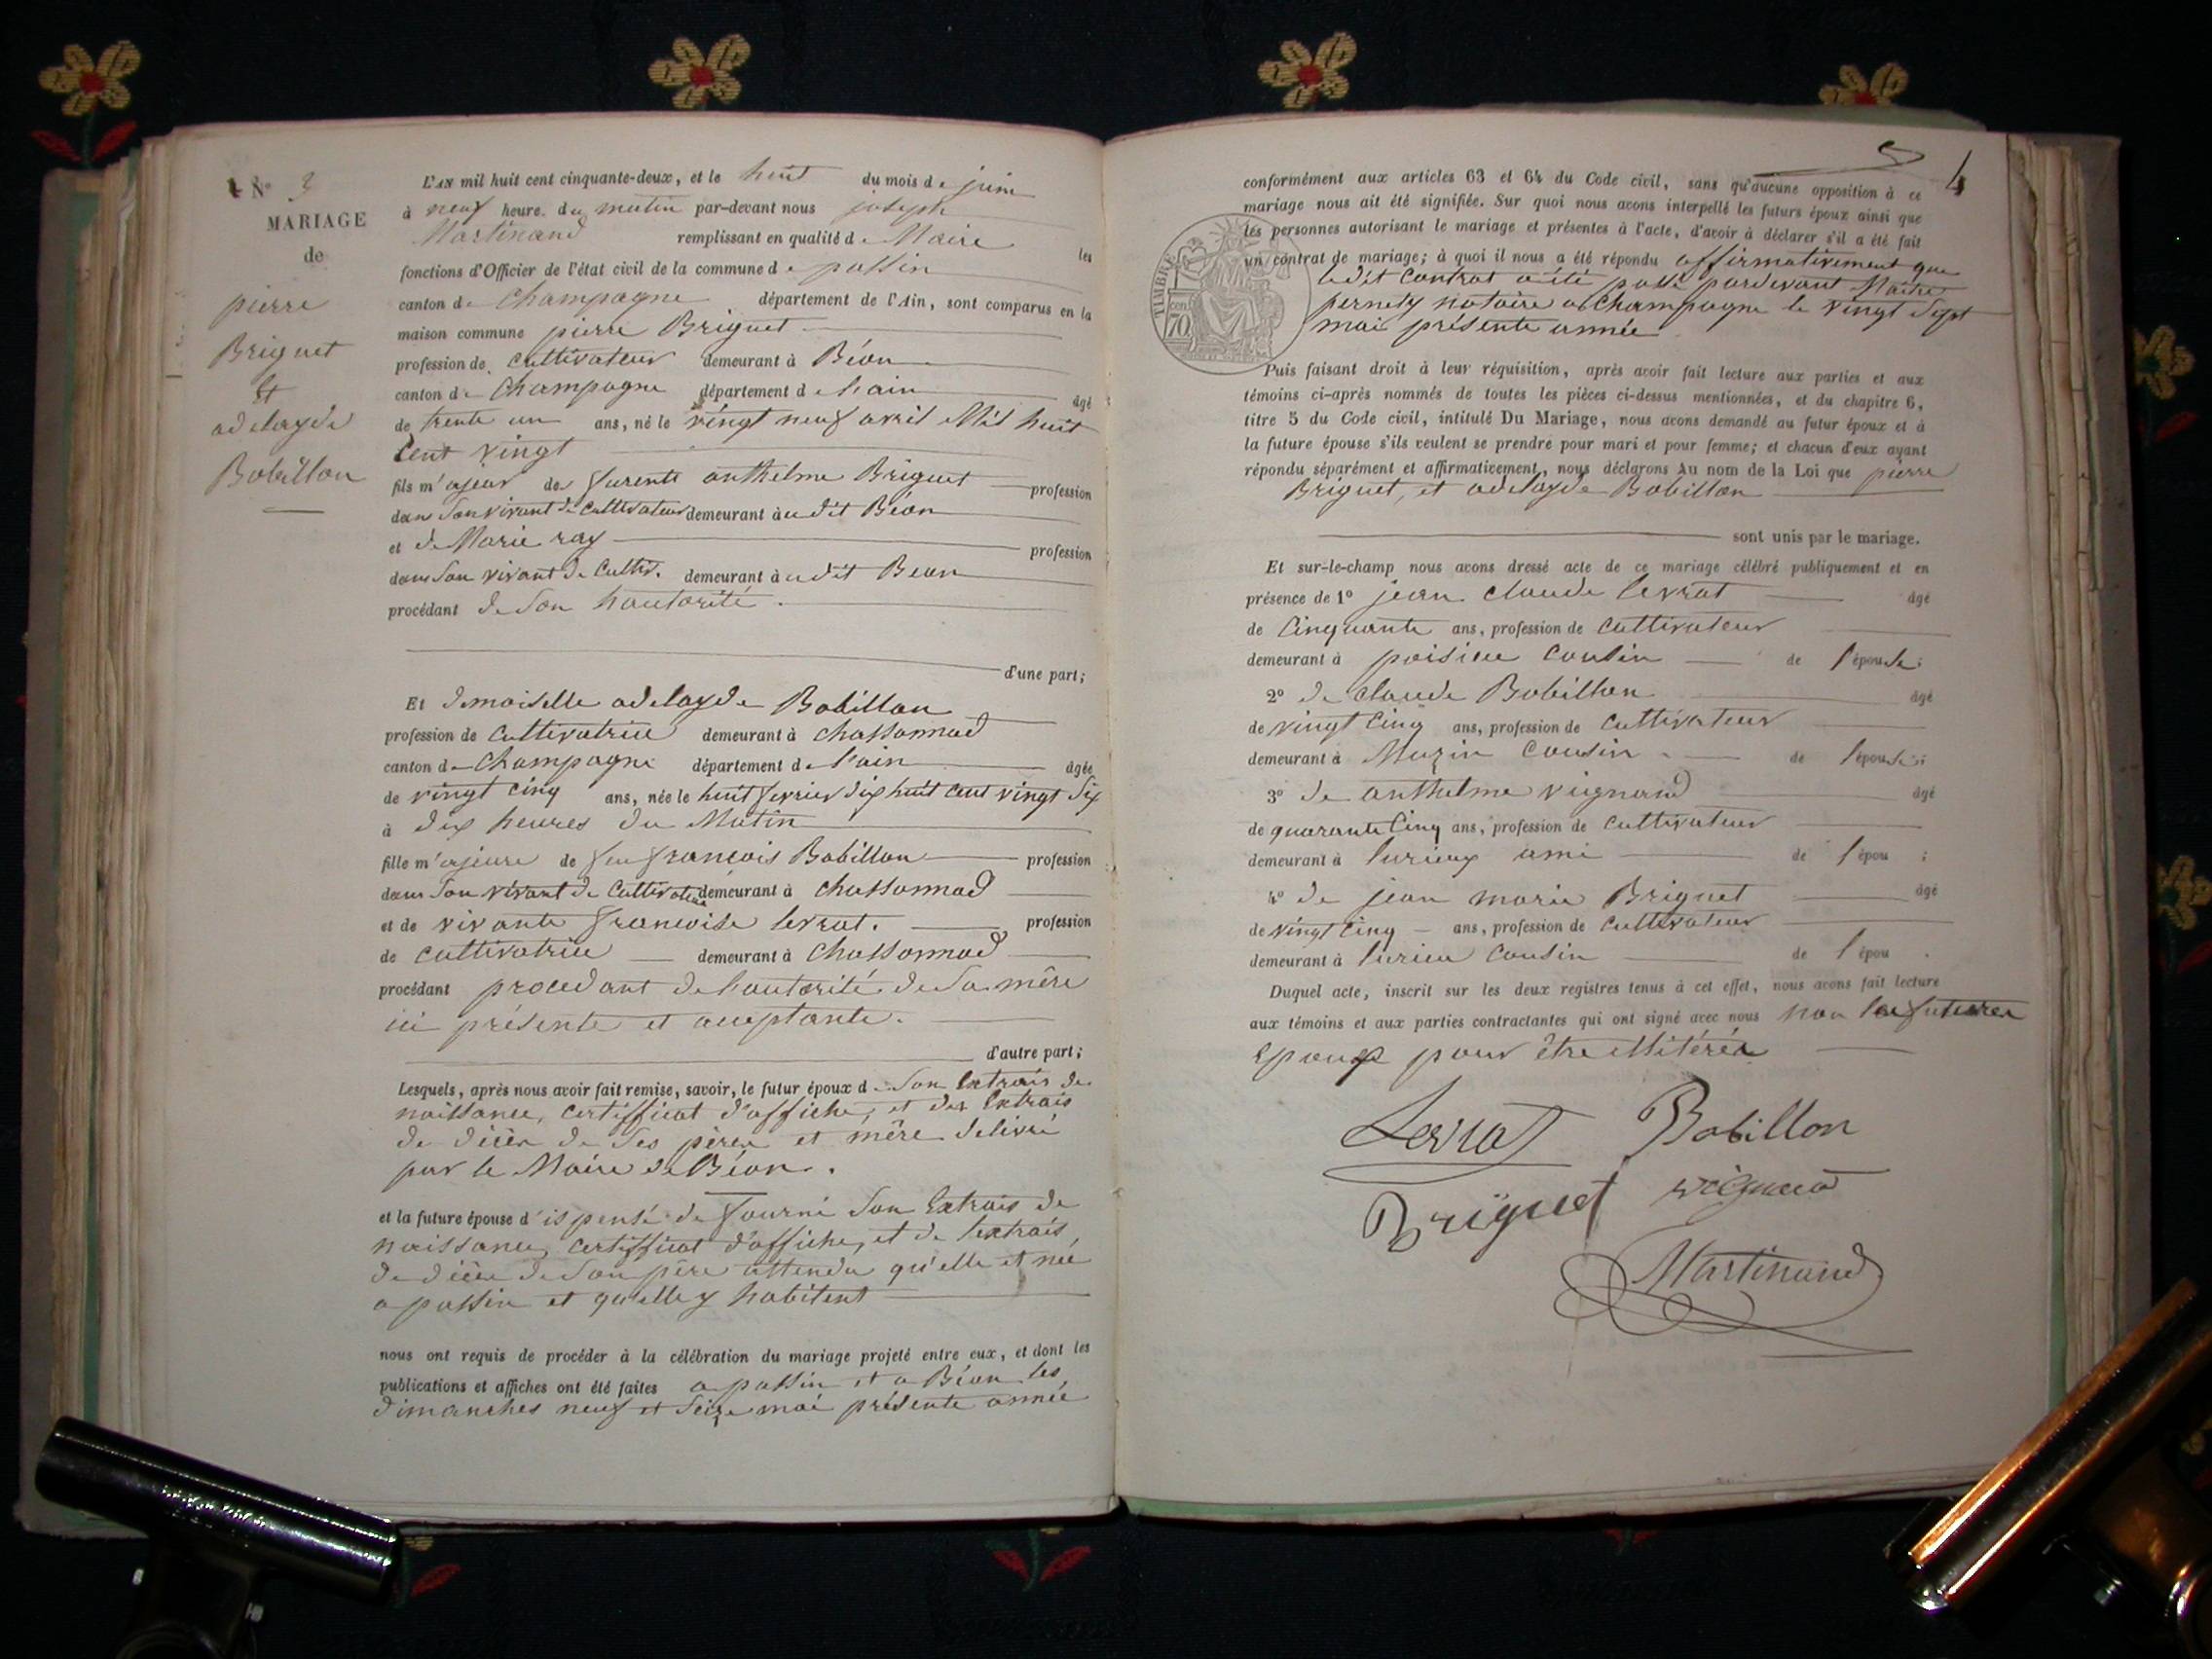 N° 3
MARIAGE
de
pierre
Briguet
Et
adelayde
Bobillon
L'AN mil huit cent cinquante-deux, et le huit du mois de juin
à neuf heure. du matin par-devant nous joseph
Martinand remplissant en qualité de Maire les
fonctions d'Officier de l'état civil de la commune de passin
canton de Champagne département de l'Ain, sont comparus en la
maison commune pierre Briguet
profession de cultivateur demeurant à Béon
canton de Champagne département de lain âgé
de trente un ans, né le vingt neuf avril Mil huit
Cent vingt
fils m'ajeur de anthelme Briguet profession
dans son vivant de cultivateur demeurant à u dit Béon
et de Marie ray profession
dans son vivant de cultiv. demeurant à u dit Beon
procédant de son hautorité.
d'une part;
Et demoiselle adelayde Bobillon
profession de cultivatrice demeurant à chassonnad
canton de Champagne département de l'ain âgée
de vingt cinq ans, née le huit fevrier dix huit cent vingt six
à dix heures du Matin
fille m'ajeure de feu francois Bobillon profession
dans son vivant de cultivateur demeurant à chassonnad
et de vivante francoise levrat. profession
de cultivatrice demeurant à chassonnad
procédant procedant de hautorité de sa mêre
ici présente et aceptante.
d'autre part;
Lesquels, après nous avoir fait remise, savoir, le futur époux de son Extrais de
naissance, certifficat d'affiche, et des Extrais
de décès de ses pères et mêre delivré
par le Maire de Béon.
et la future épouse d'ispensé de fourni son Extrais de
naissance, certifficat d'affiche, et de lextrais
de décès de son père attendu qu'elle et née
a passin et qu'elle y habitent
nous ont requis de procéder à la célébration du mariage projeté entre eux, et dont les
publications et affiches ont été faites a passin et a Béon les
dimanches neuf et seize mai présente année
4
conformément aux articles 63 et 64 du Code civil, sans qu'aucune opposition à ce
mariage nous ait été signifiée. Sur quoi nous avons interpellé les futurs époux ainsi que
les personnes autorisant le mariage et présentes à l'acte, d'avoir à déclarer s'il a été fait
un contrat de mariage; à quoi il nous a été répondu affirmativement que
ledit contrat a été passé pardevant Maitre
pernety notaire a Champagne le vingt sept
mai présente année
TIMBRE
70 cen
Puis faisant droit à leur réquisition, après avoir fait lecture aux parties et aux
témoins ci-après nommés de toutes les pièces ci-dessus mentionnées, et du chapitre 6,
titre 5 du Code civil, intitulé Du Mariage, nous avons demandé au futur époux et à
la future épouse s'ils veulent se prendre pour mari et pour femme; et chacun d'eux ayant
répondu séparément et affirmativement, nous déclarons Au nom de la Loi que pierre
Briguet, et adelayde Bobillon
sont unis par le mariage.
Et sur-le-champ nous avons dressé acte de ce mariage célébré publiquement et en
présence de 1° jean claude levrat âgé
de Cinquante ans, profession de cultivateur
demeurant à poisieu cousin de l'épouse;
2° de claude Bobillon âgé
de vingt cinq ans, profession de cultivateur
demeurant à Muzin cousin de l'épouse;
3° de anthelme vignand âgé
de quarante cinq ans, profession de cultivateur
demeurant à lurieux ami de l'épou ;
4° de jean marie Briguet âgé
de vingt cinq ans, profession de cultivateur
demeurant à lurieu cousin de l'épou .
Duquel acte, inscrit sur les deux registres tenus à cet effet, nous avons fait lecture
aux témoins et aux parties contractantes qui ont signé avec nous non la future
Epouse pour être illitérée
Levrat Bobillon
Briguet vignand
Martinand